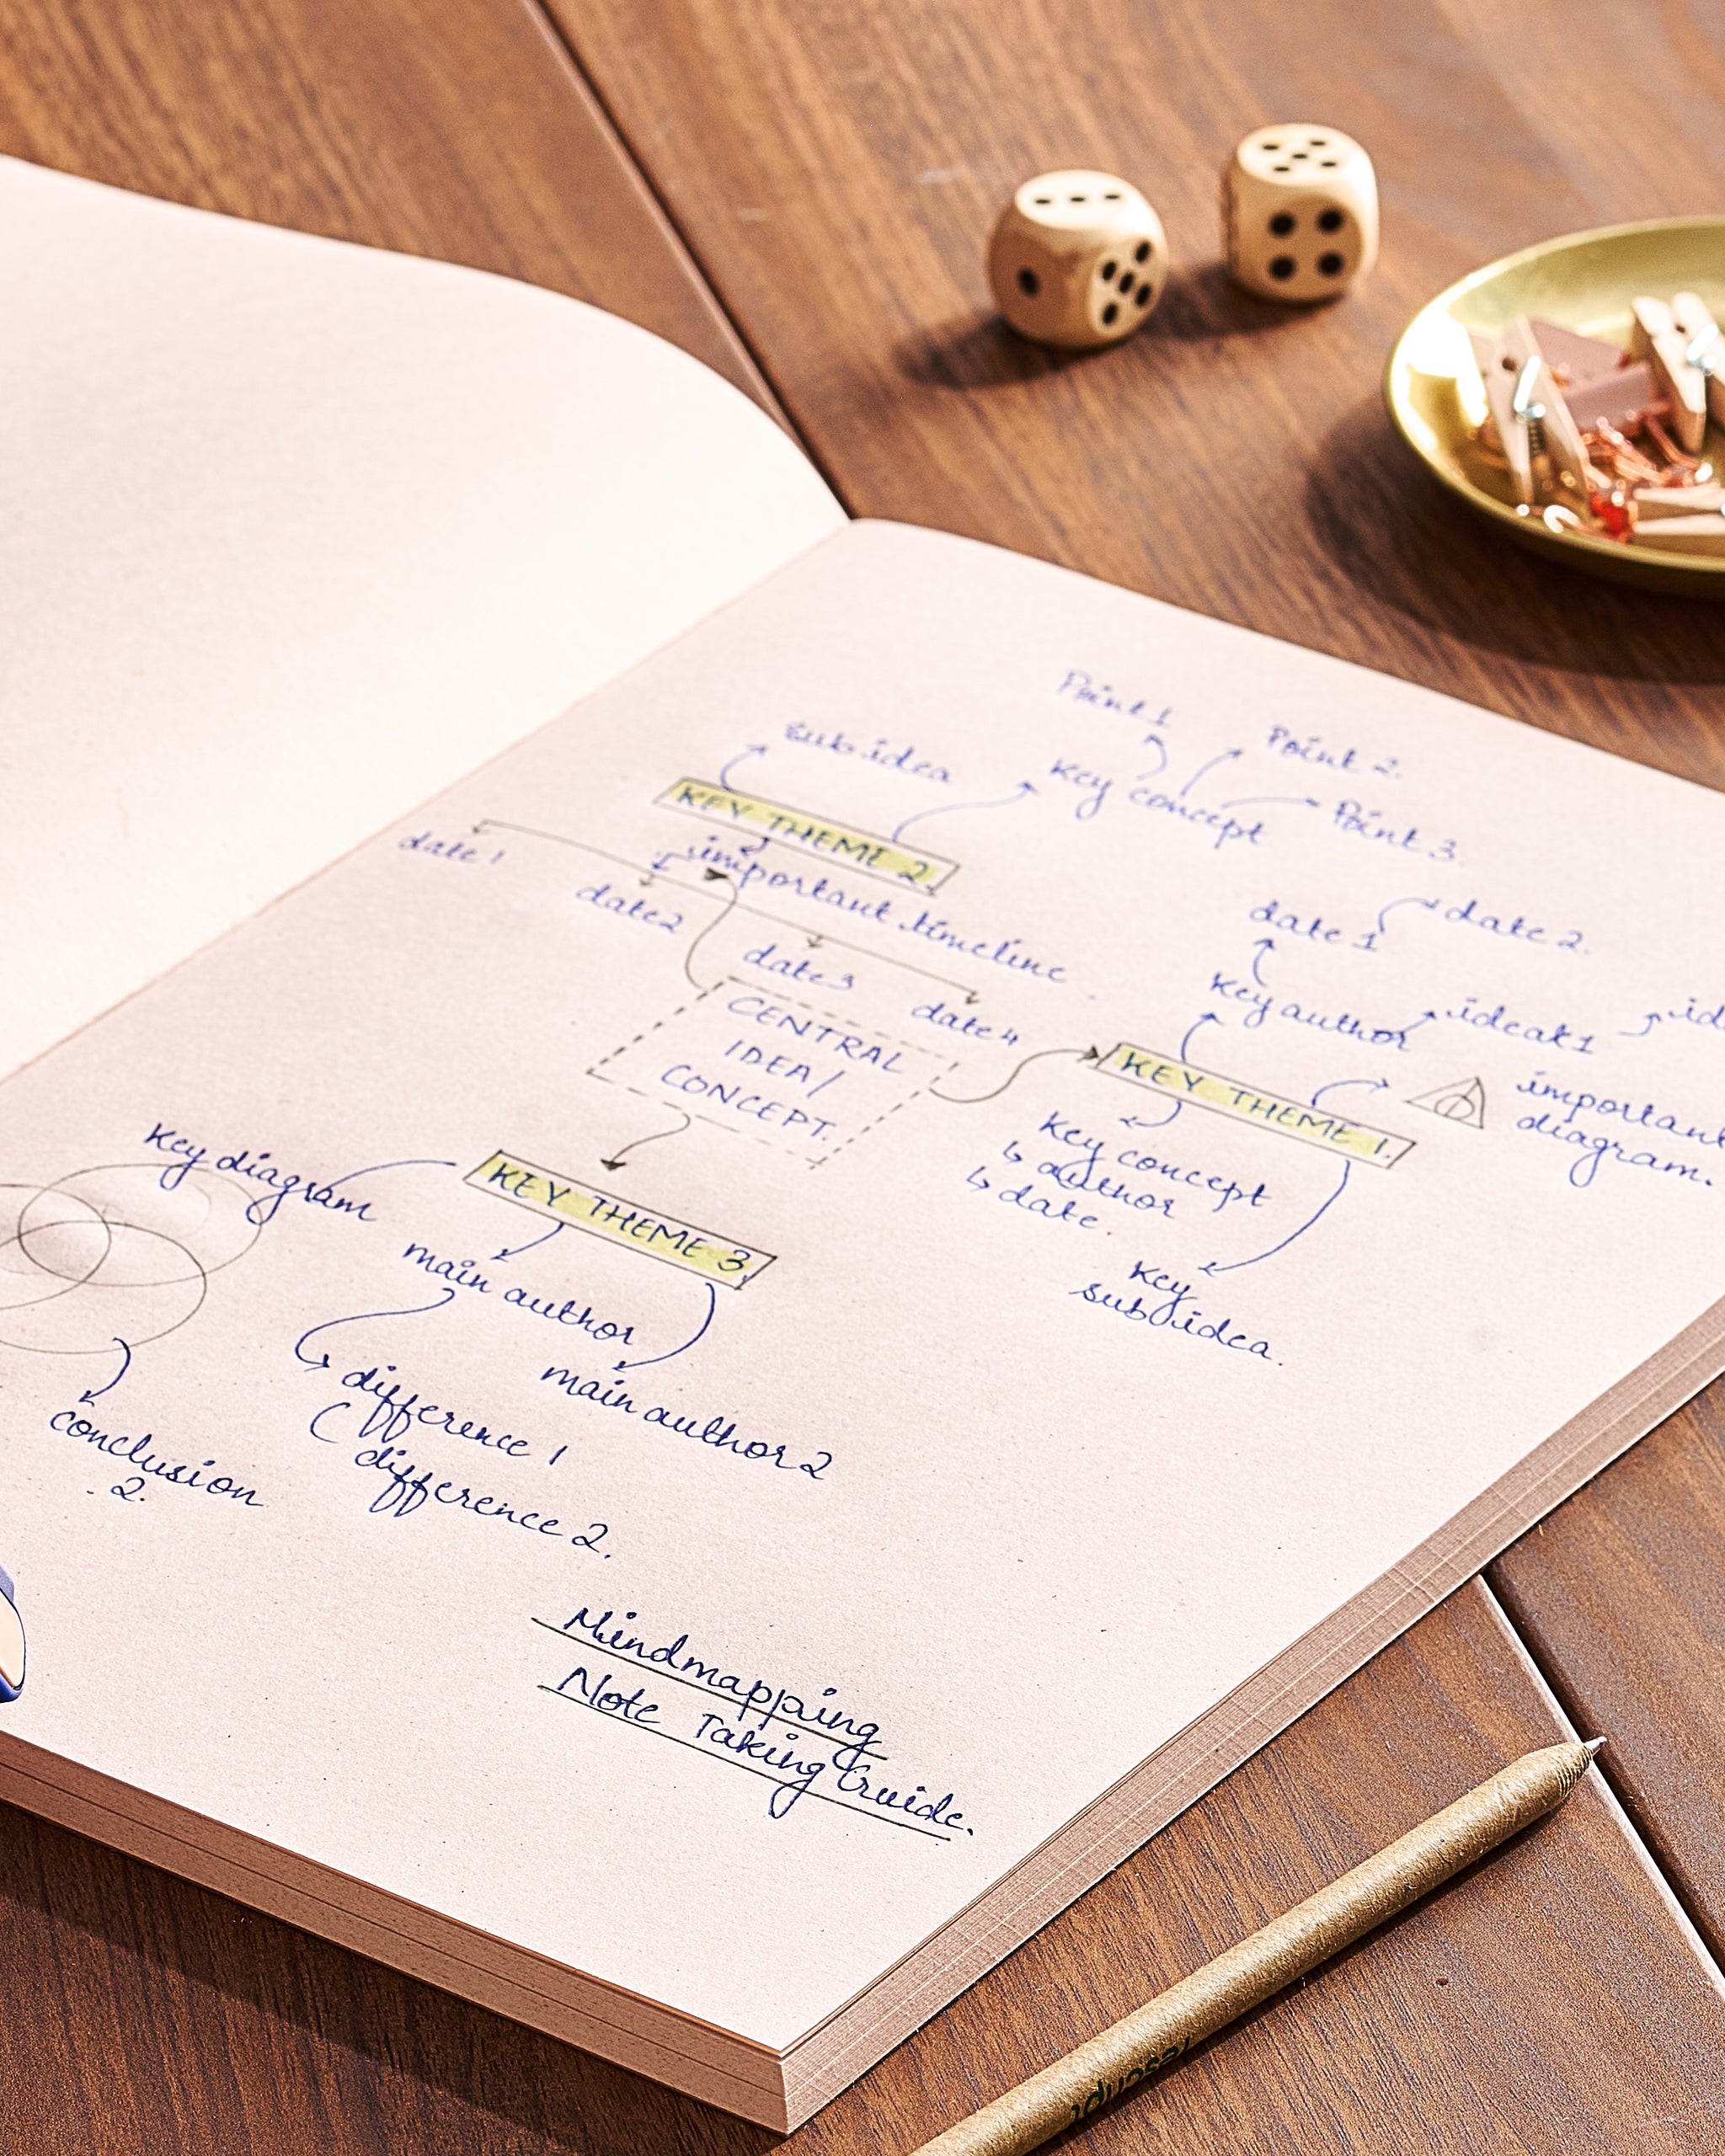 Point 1
Point 2.
sub idea
Key concept
Point 3.
KEY THEME 2.
date 1
important timeline
date 2
date 1
date 2.
date 3
date 4
Key author
ideak1
CENTRAL
IDEA/
CONCEPT.
KEY THEME 1.
important
diagram.
Key concept
↳ author
↳ date.
Key
sub idea.
Key diagram
KEY THEME 3.
main author
main author 2
difference 1
difference 2.
conclusion
2.
Mindmapping
Note Taking Guide.